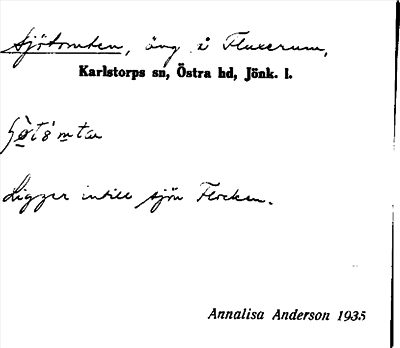 Sjötomten, äng å Fluxerum,
Karlstorps sn, Östra hd, Jönk. l.
Ligger intill sjön Flocken.
Annalisa Anderson 1935